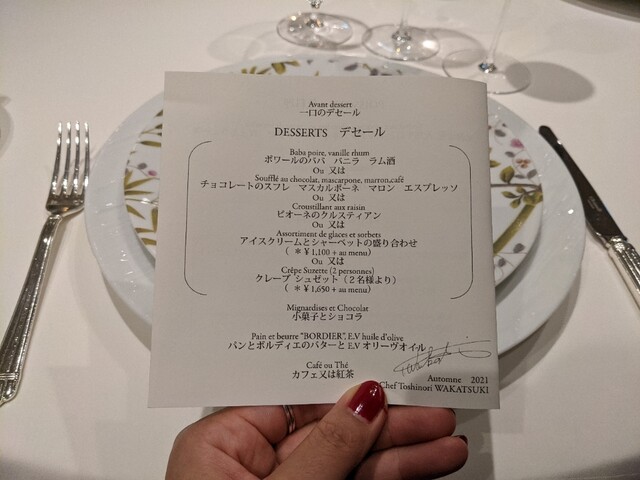 Avant dessert
一口のデセール
DESSERTS デセール
Baba poire, vanille rhum
ポワールのババ バニラ ラム酒
Ou 又は
Soufflé au chocolat, mascarpone, marron,café
チョコレートのスフレ マスカルポーネ マロン エスプレッソ
Ou 又は
Croustillant aux raisin
ピオーネのクルスティアン
Ou 又は
Assortiment de glaces et sorbets
アイスクリームとシャーベットの盛り合わせ
( ＊¥1,100 + au menu)
Ou 又は
Crêpe Suzette (2 personnes)
クレープ シュゼット (２名様より)
( ＊¥1,650 + au menu)
Mignardises et Chocolat
小菓子とショコラ
Pain et beurre "BORDIER", E.V huile d'olive
パンとボルディエのバターと E.V オリーヴオイル
Café ou Thé
カフェ又は紅茶
Automne 2021
Chef Toshinori WAKATSUKI